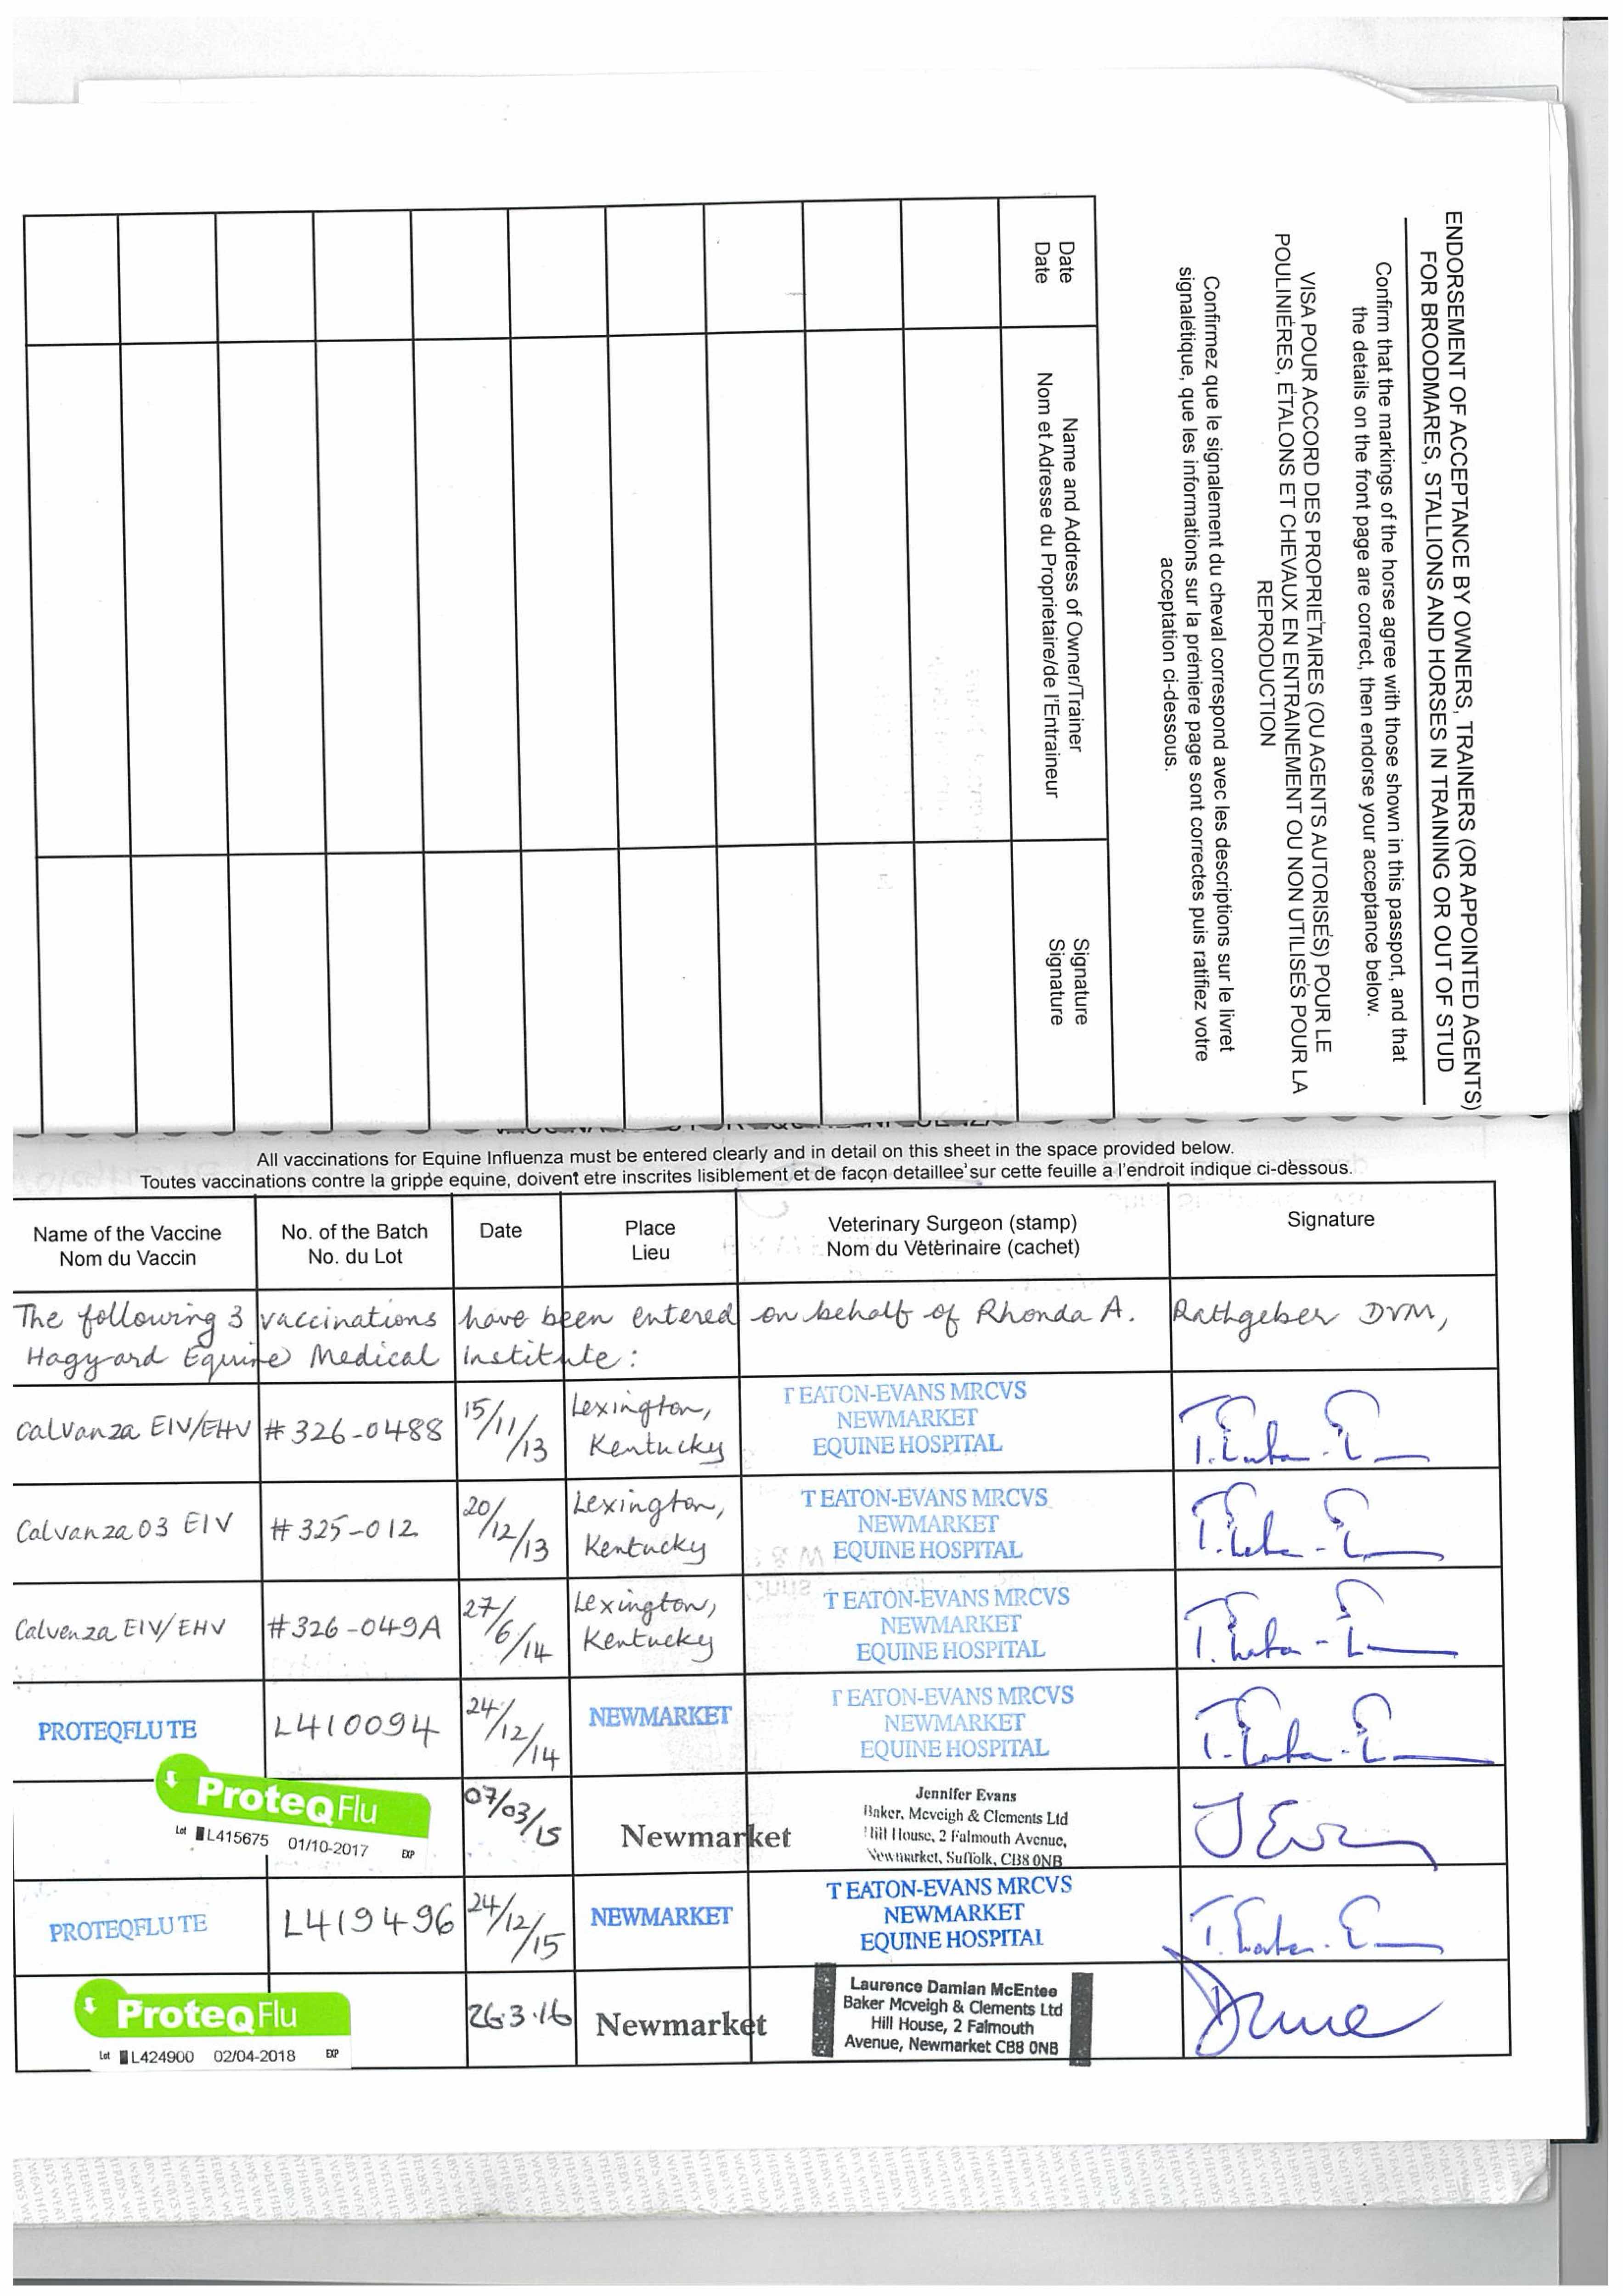 ENDORSEMENT OF ACCEPTANCE BY OWNERS, TRAINERS (OR APPOINTED AGENTS)
FOR BROODMARES, STALLIONS AND HORSES IN TRAINING OR OUT OF STUD
Confirm that the markings of the horse agree with those shown in this passport, and that
the details on the front page are correct, then endorse your acceptance below.
VISA POUR ACCORD DES PROPRIETAIRES (OU AGENTS AUTORISES) POUR LE
POULINIERES, ETALONS ET CHEVAUX EN ENTRAINEMENT OU NON UTILISES POUR LA
REPRODUCTION
Confirmez que le signalement du cheval correspond avec les descriptions sur le livret
signalétique, que les informations sur la premiere page sont correctes puis ratifiez votre
acceptation ci-dessous.
Date Name and Address of Owner/Trainer Signature
Date Nom et Adresse du Proprietaire/de l'Entraineur Signature
All vaccinations for Equine Influenza must be entered clearly and in detail on this sheet in the space provided below.
Toutes vaccinations contre la grippe equine, doivent etre inscrites lisiblement et de façon detaillee sur cette feuille a l'endroit indique ci-dessous.
Name of the Vaccine No. of the Batch Date Place Veterinary Surgeon (stamp) Signature
Nom du Vaccin No. du Lot Lieu Nom du Vétérinaire (cachet)
The following 3 vaccinations have been entered on behalf of Rhonda A. Rathgeber DVM,
Hagyard Equine Medical Institute:
Calvanza EIV/EHV #326-0488 15/11/13 Lexington, Kentucky
T EATON-EVANS MRCVS
NEWMARKET
EQUINE HOSPITAL
Calvanza 03 EIV #325-012 20/12/13 Lexington, Kentucky
T EATON-EVANS MRCVS
NEWMARKET
EQUINE HOSPITAL
Calvenza EIV/EHV #326-049A 27/6/14 Lexington, Kentucky
T EATON-EVANS MRCVS
NEWMARKET
EQUINE HOSPITAL
PROTEQFLU TE L410094 24/12/14 NEWMARKET
T EATON-EVANS MRCVS
NEWMARKET
EQUINE HOSPITAL
ProteqFlu
Lot L415675 01/10-2017 EXP
07/03/15 Newmarket
Jennifer Evans
Baker, Mcveigh & Clements Ltd
Hill House, 2 Falmouth Avenue,
Newmarket, Suffolk, CB8 0NB
J Evans
PROTEQFLU TE L419496 24/12/15 NEWMARKET
T EATON-EVANS MRCVS
NEWMARKET
EQUINE HOSPITAL
ProteqFlu
Lot L424900 02/04-2018 EXP
26.3.16 Newmarket
Laurence Damian McEntee
Baker Mcveigh & Clements Ltd
Hill House, 2 Falmouth
Avenue, Newmarket CB8 0NB